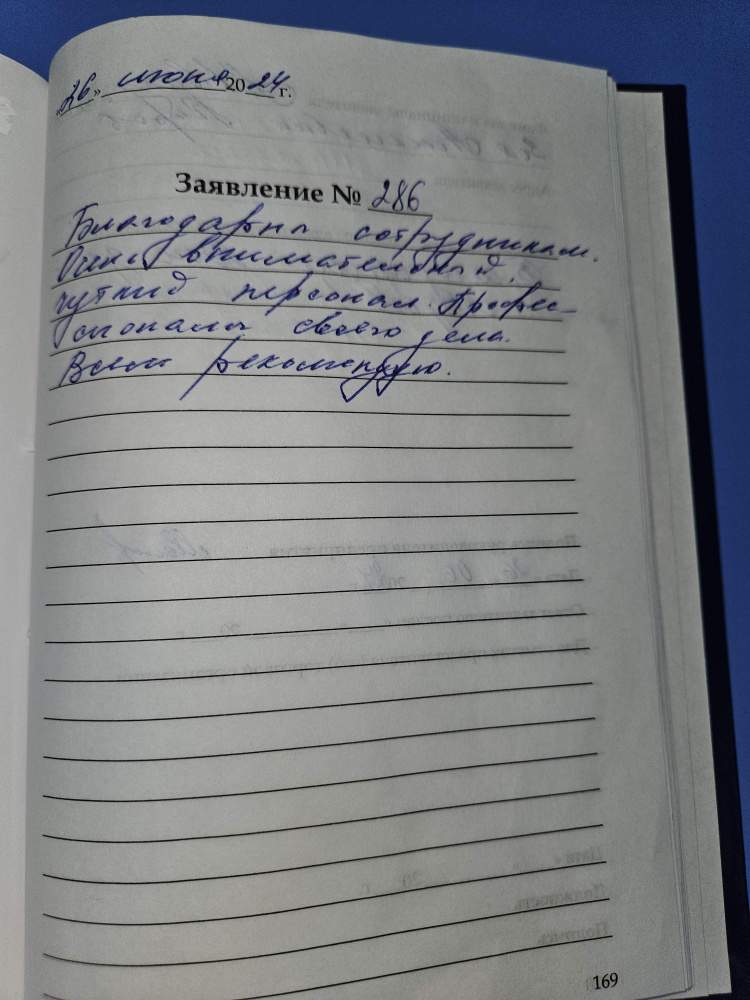 «26» июня 2024 г.
Заявление № 286
Благодарны сотрудникам.
Очень внимательный,
чуткий персонал. Профес-
сионалы своего дела.
Всем рекомендую.
169